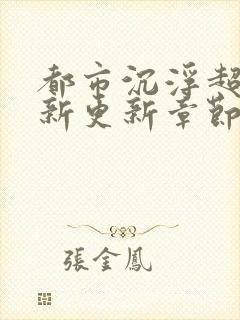 都市沉浮超
新更新章節
張金鳳